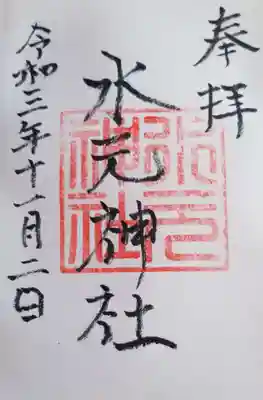 奉拝
水元神社
令和三年十一月二日